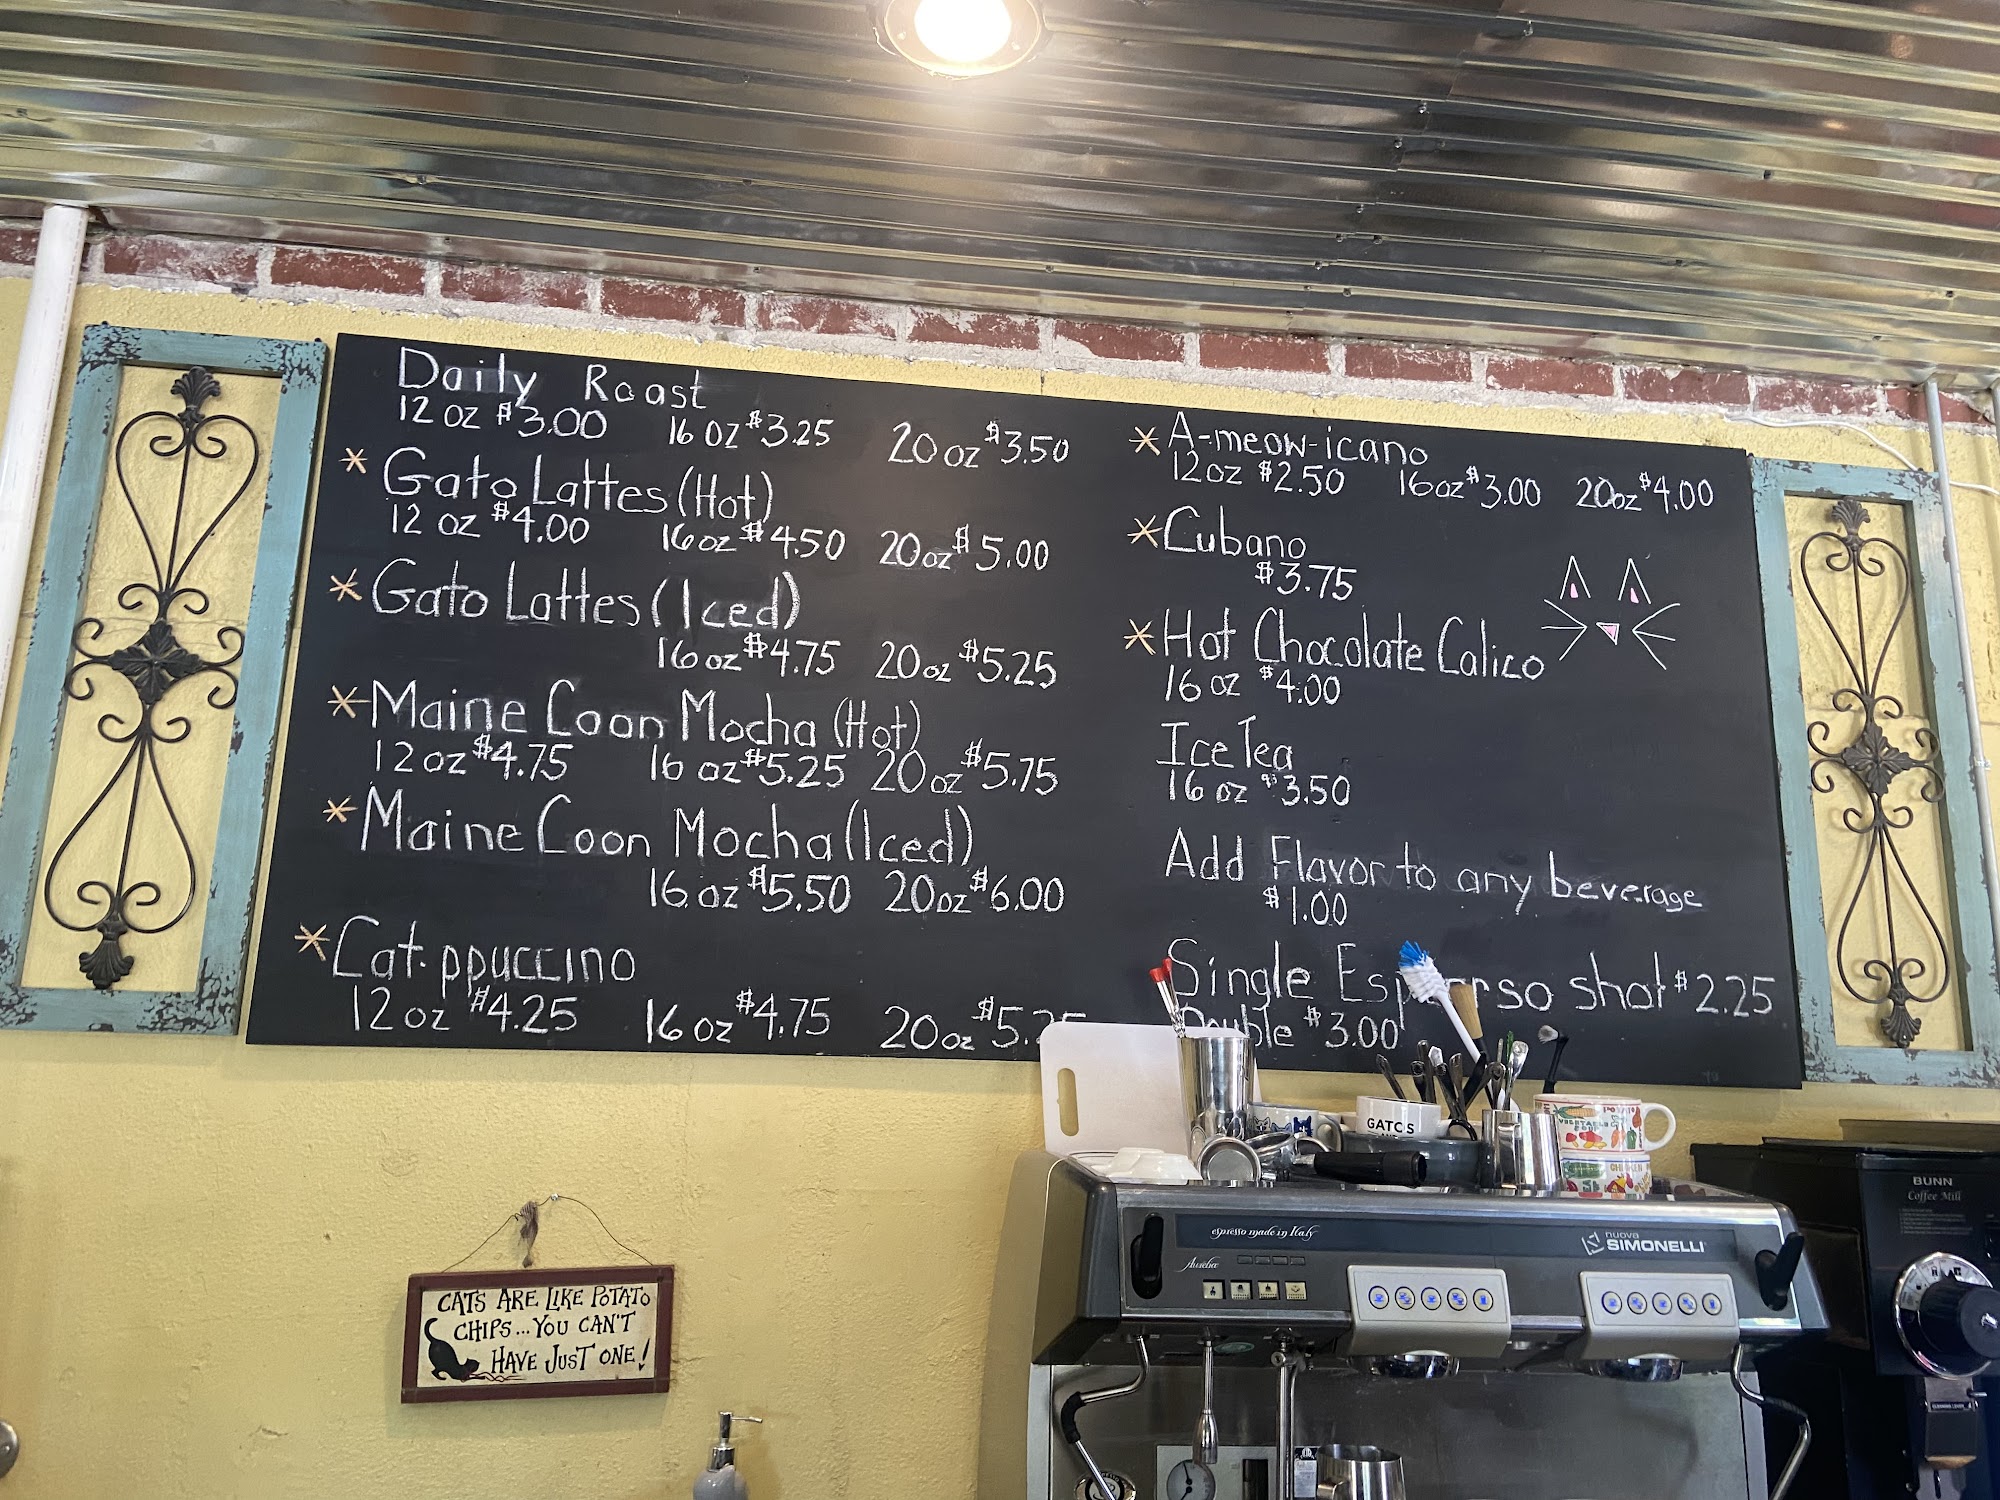 Daily Roast
12 oz $3.00 16 oz $3.25 20 oz $3.50
* Gato Lattes (Hot)
12 oz $4.00 16 oz $4.50 20 oz $5.00
* Gato Lattes (Iced)
16 oz $4.75 20 oz $5.25
* Maine Coon Mocha (Hot)
12 oz $4.75 16 oz $5.25 20 oz $5.75
* Maine Coon Mocha (Iced)
16 oz $5.50 20 oz $6.00
* Cat·ppuccino
12 oz $4.25 16 oz $4.75 20 oz
* A-meow-icano
12 oz $2.50 16 oz $3.00 20 oz $4.00
* Cubano
$3.75
* Hot Chocolate Calico
16 oz $4.00
Ice Tea
16 oz $3.50
Add Flavor to any beverage
$1.00
Single shot $2.25
Double $3.00
CATS ARE LIKE POTATO
CHIPS... YOU CAN'T
HAVE JUST ONE!
GATOS
VEGETABLE
SOUP
espresso made in Italy
Aurelia
nuova
SIMONELLI
BUNN
Coffee Mill